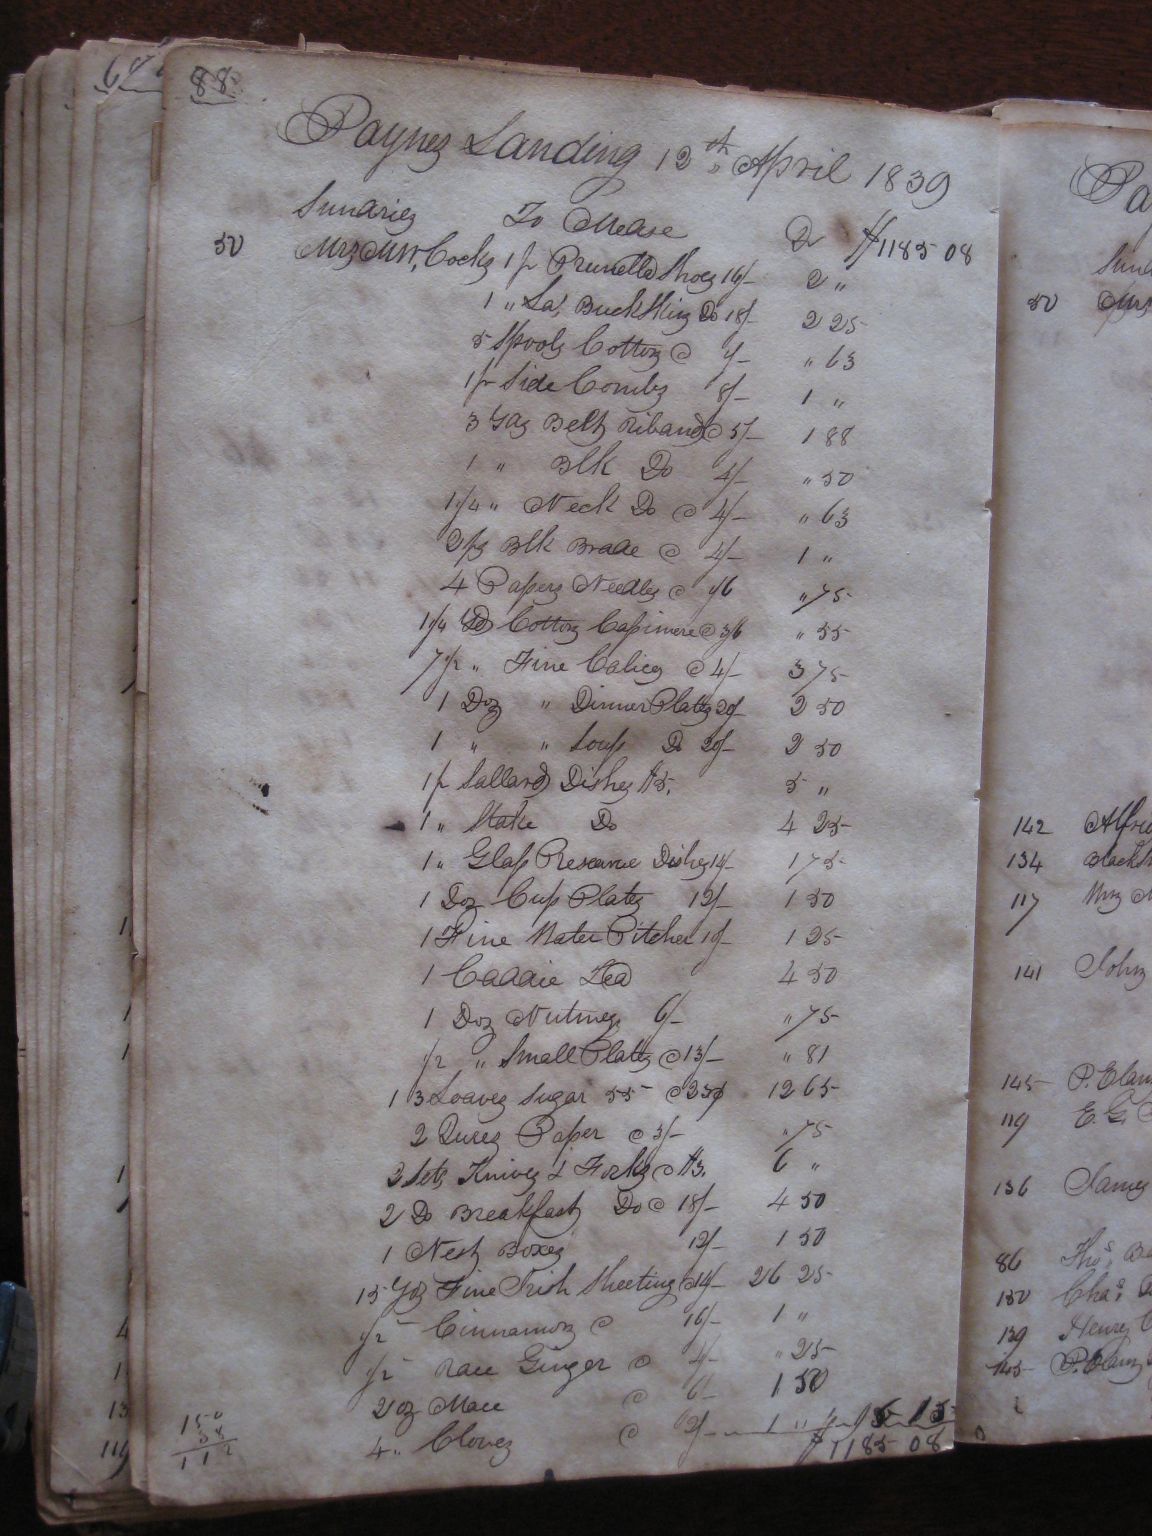 88
Paynes Landing 12th April 1839
Sundries To Mdse Dr $1185 08
50 Mrs M.W. Cocks 1 pr Prunella Shoes 16/- 2 "
1 " La. Buckskins Do 18/- 2 25
5 Spools Cotton @ 1/- " 63
1 pr Side Combs 8/- 1 "
3 Yds Belt Riband @ 5/- 1 88
1 " Blk Do 4/- " 50
1 1/4 " Neck Do @ 4/- " 63
2 ps Blk Brade @ 4/- 1 "
4 Papers Needles @ 1/6 " 75
1 1/4 Yd Cotton Casimere @ 3/6 " 55
7 1/2 " Fine Calico @ 4/- 3 75
1 Doz " Dinner Plates 20/- 2 50
1 " " Soup Do 20/- 2 50
1 pr Sallard Dishes $5. 5 "
1 " Stake Do 4 25
1 " Glass Preserve Dishes 14/- 1 75
1 Doz Cup Plates 12/- 1 50
1 Fine Water Pitcher 10/- 1 25
1 Caddie Tea 4 50
1 Doz Nutmegs 6/- " 75
1/2 " Small Plates @ 13/- " 81
1 3 Loaves Sugar 55 @ 23¢ 12 65
2 Quires Paper @ 3/- " 75
2 Sets Knives & Forks @ $3. 6 "
2 Do Breakfast Do @ 18/- 4 50
1 Nest Boxes 12/- 1 50
15 Yds Fine Irish Sheeting @ 14/- 26 25
1/2 " Cinnamon @ 16/- 1 "
1/2 " Race Ginger @ 4/- " 25
2 oz Mace @ 6/- 1 50
4 " Cloves @ 2/- 1 "
$1185 08
150
38
112
Pa
50 Mrs
142 Alfre
134 Black
117 Mrs M
141 John
145 P. Elam
119 E. G.
136 James
86 Thos. Be
150 Chas.
139 Henry
145 P. Elam